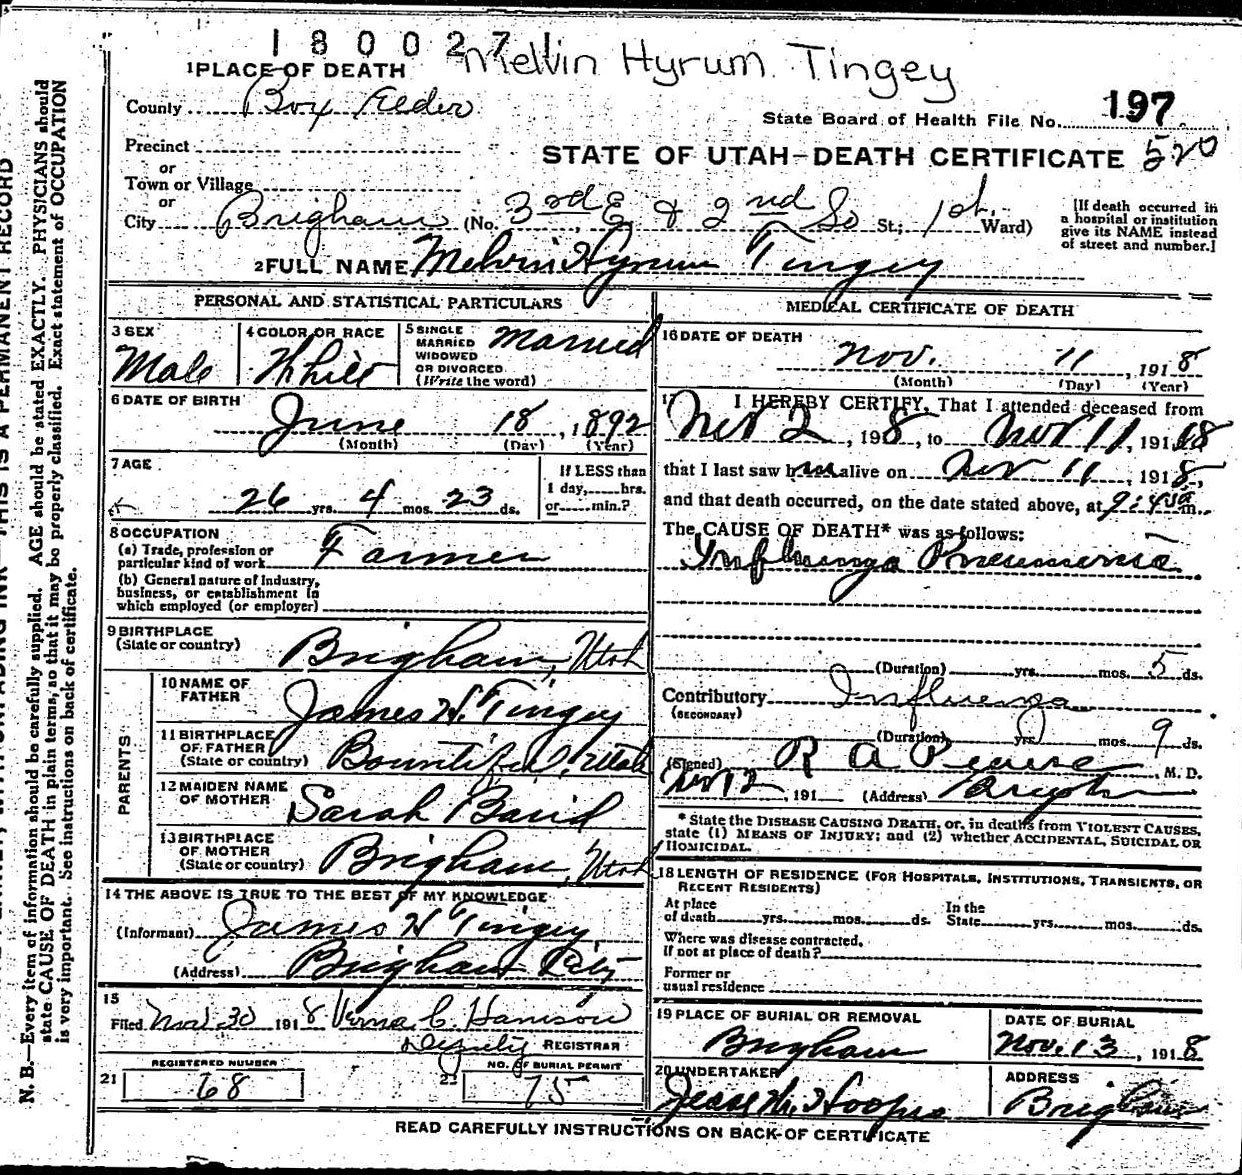 1 8 0 0 2 7 1
Melvin Hyrum Tingey
1 PLACE OF DEATH
County Box Elder
State Board of Health File No. 197
Precinct
or
Town or Village
or
STATE OF UTAH-DEATH CERTIFICATE 520
City Brigham (No. 3rd E & 2nd So St; 1st. Ward)
[If death occurred in
a hospital or institution
give its NAME instead
of street and number.]
2 FULL NAME Melvin Hyrum Tingey
PERSONAL AND STATISTICAL PARTICULARS
3 SEX
Male
4 COLOR OR RACE
White
5 SINGLE
MARRIED
WIDOWED
OR DIVORCED
(Write the word)
Married
6 DATE OF BIRTH
June 18, 1892
(Month) (Day) (Year)
7 AGE
26 yrs. 4 mos. 23 ds.
If LESS than
1 day,......hrs.
or......min.?
8 OCCUPATION
(a) Trade, profession or
particular kind of work Farmer
(b) General nature of Industry,
business, or establishment in
which employed (or employer)
9 BIRTHPLACE
(State or country) Brigham, Utah
PARENTS
10 NAME OF
FATHER
James H. Tingey
11 BIRTHPLACE
OF FATHER
(State or country) Bountiful, Utah
12 MAIDEN NAME
OF MOTHER
Sarah Baird
13 BIRTHPLACE
OF MOTHER
(State or country) Brigham, Utah
14 THE ABOVE IS TRUE TO THE BEST OF MY KNOWLEDGE
(Informant) James H Tingey
(Address) Brigham City
15
Filed Nov 30 1918 Verna C. Harrison
Deputy REGISTRAR
REGISTERED NUMBER
21 68
NO. OF BURIAL PERMIT
22 75
MEDICAL CERTIFICATE OF DEATH
16 DATE OF DEATH
Nov. 11, 1918
(Month) (Day) (Year)
17 I HEREBY CERTIFY, That I attended deceased from
Nov 2, 1918, to Nov 11, 191 18
that I last saw him alive on Nov 11, 1918,
and that death occurred, on the date stated above, at 9:45a m.
The CAUSE OF DEATH* was as follows:
Influenza Pneumonia
(Duration) yrs. mos. 5 ds.
Contributory Influenza
(SECONDARY)
(Duration) yrs. mos. 9 ds.
(Signed) R A Pearse, M. D.
Nov 12, 191 (Address) Brigham
* State the DISEASE CAUSING DEATH, or, in deaths from VIOLENT CAUSES,
state (1) MEANS OF INJURY; and (2) whether ACCIDENTAL, SUICIDAL OR
HOMICIDAL.
18 LENGTH OF RESIDENCE (FOR HOSPITALS, INSTITUTIONS, TRANSIENTS, OR
RECENT RESIDENTS)
At place
of death yrs. mos. ds.
In the
State yrs. mos. ds.
Where was disease contracted,
if not at place of death?
Former or
usual residence
19 PLACE OF BURIAL OR REMOVAL
Brigham
DATE OF BURIAL
Nov. 13, 1918
20 UNDERTAKER
Jesse W. Hoopes
ADDRESS
Brigham
READ CAREFULLY INSTRUCTIONS ON BACK OF CERTIFICATE
THIS IS A PERMANENT RECORD
N. B.—Every item of information should be carefully supplied. AGE should be stated EXACTLY. PHYSICIANS should
state CAUSE OF DEATH in plain terms, so that it may be properly classified. Exact statement of OCCUPATION
is very important. See instructions on back of certificate.